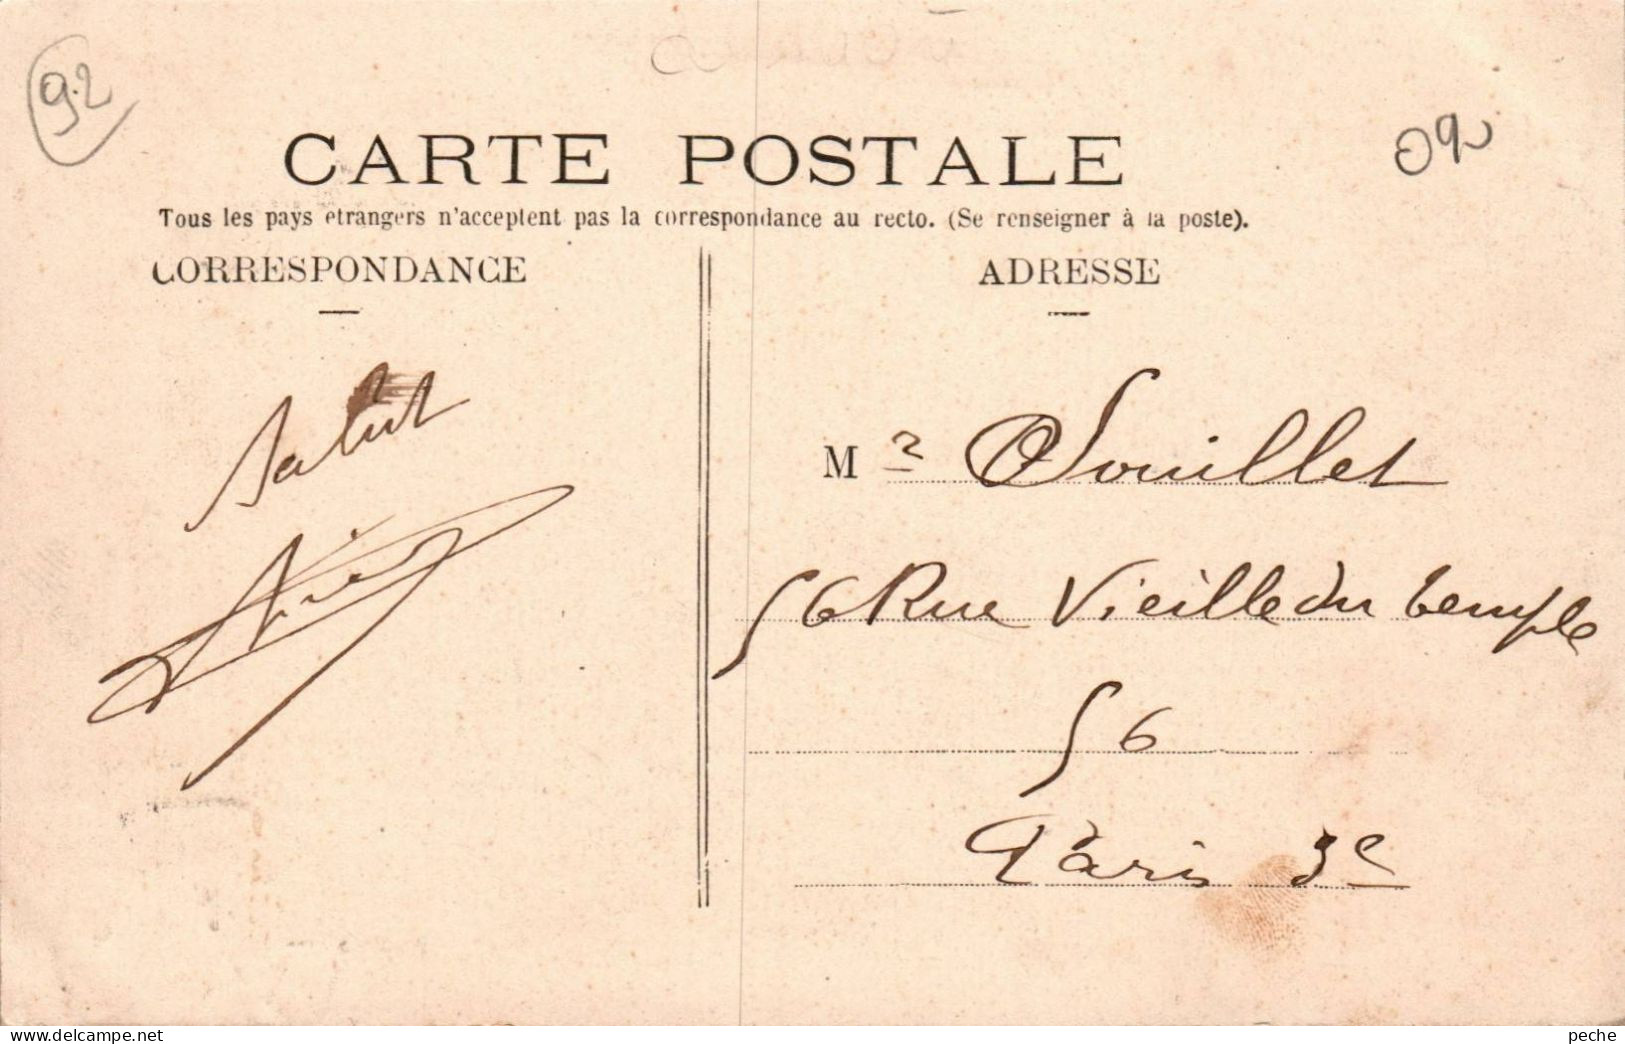 92
09
CARTE POSTALE
Tous les pays étrangers n'acceptent pas la correspondance au recto. (Se renseigner à la poste).
CORRESPONDANCE
ADRESSE
Salut
Mr Souillet
56 Rue Vieille du temple
56
Paris 3e
www.delcampe.net
peche